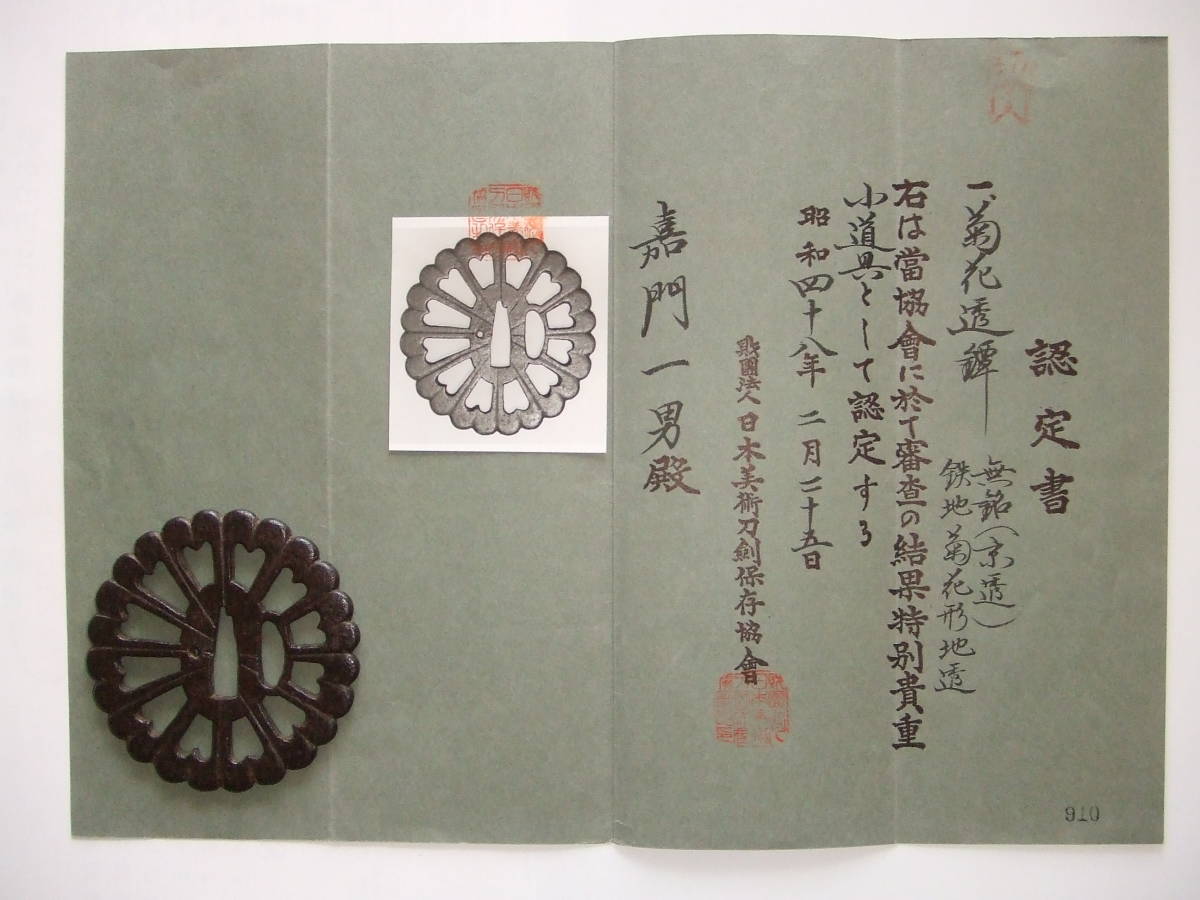 認定書
一、菊花透鐔
無銘(京透)
鉄地菊花形地透
右は當協會に於て審査の結果特別貴重
小道具として認定する
昭和四十八年二月二十五日
財團法人日本美術刀劍保存協會
嘉門一男殿
910